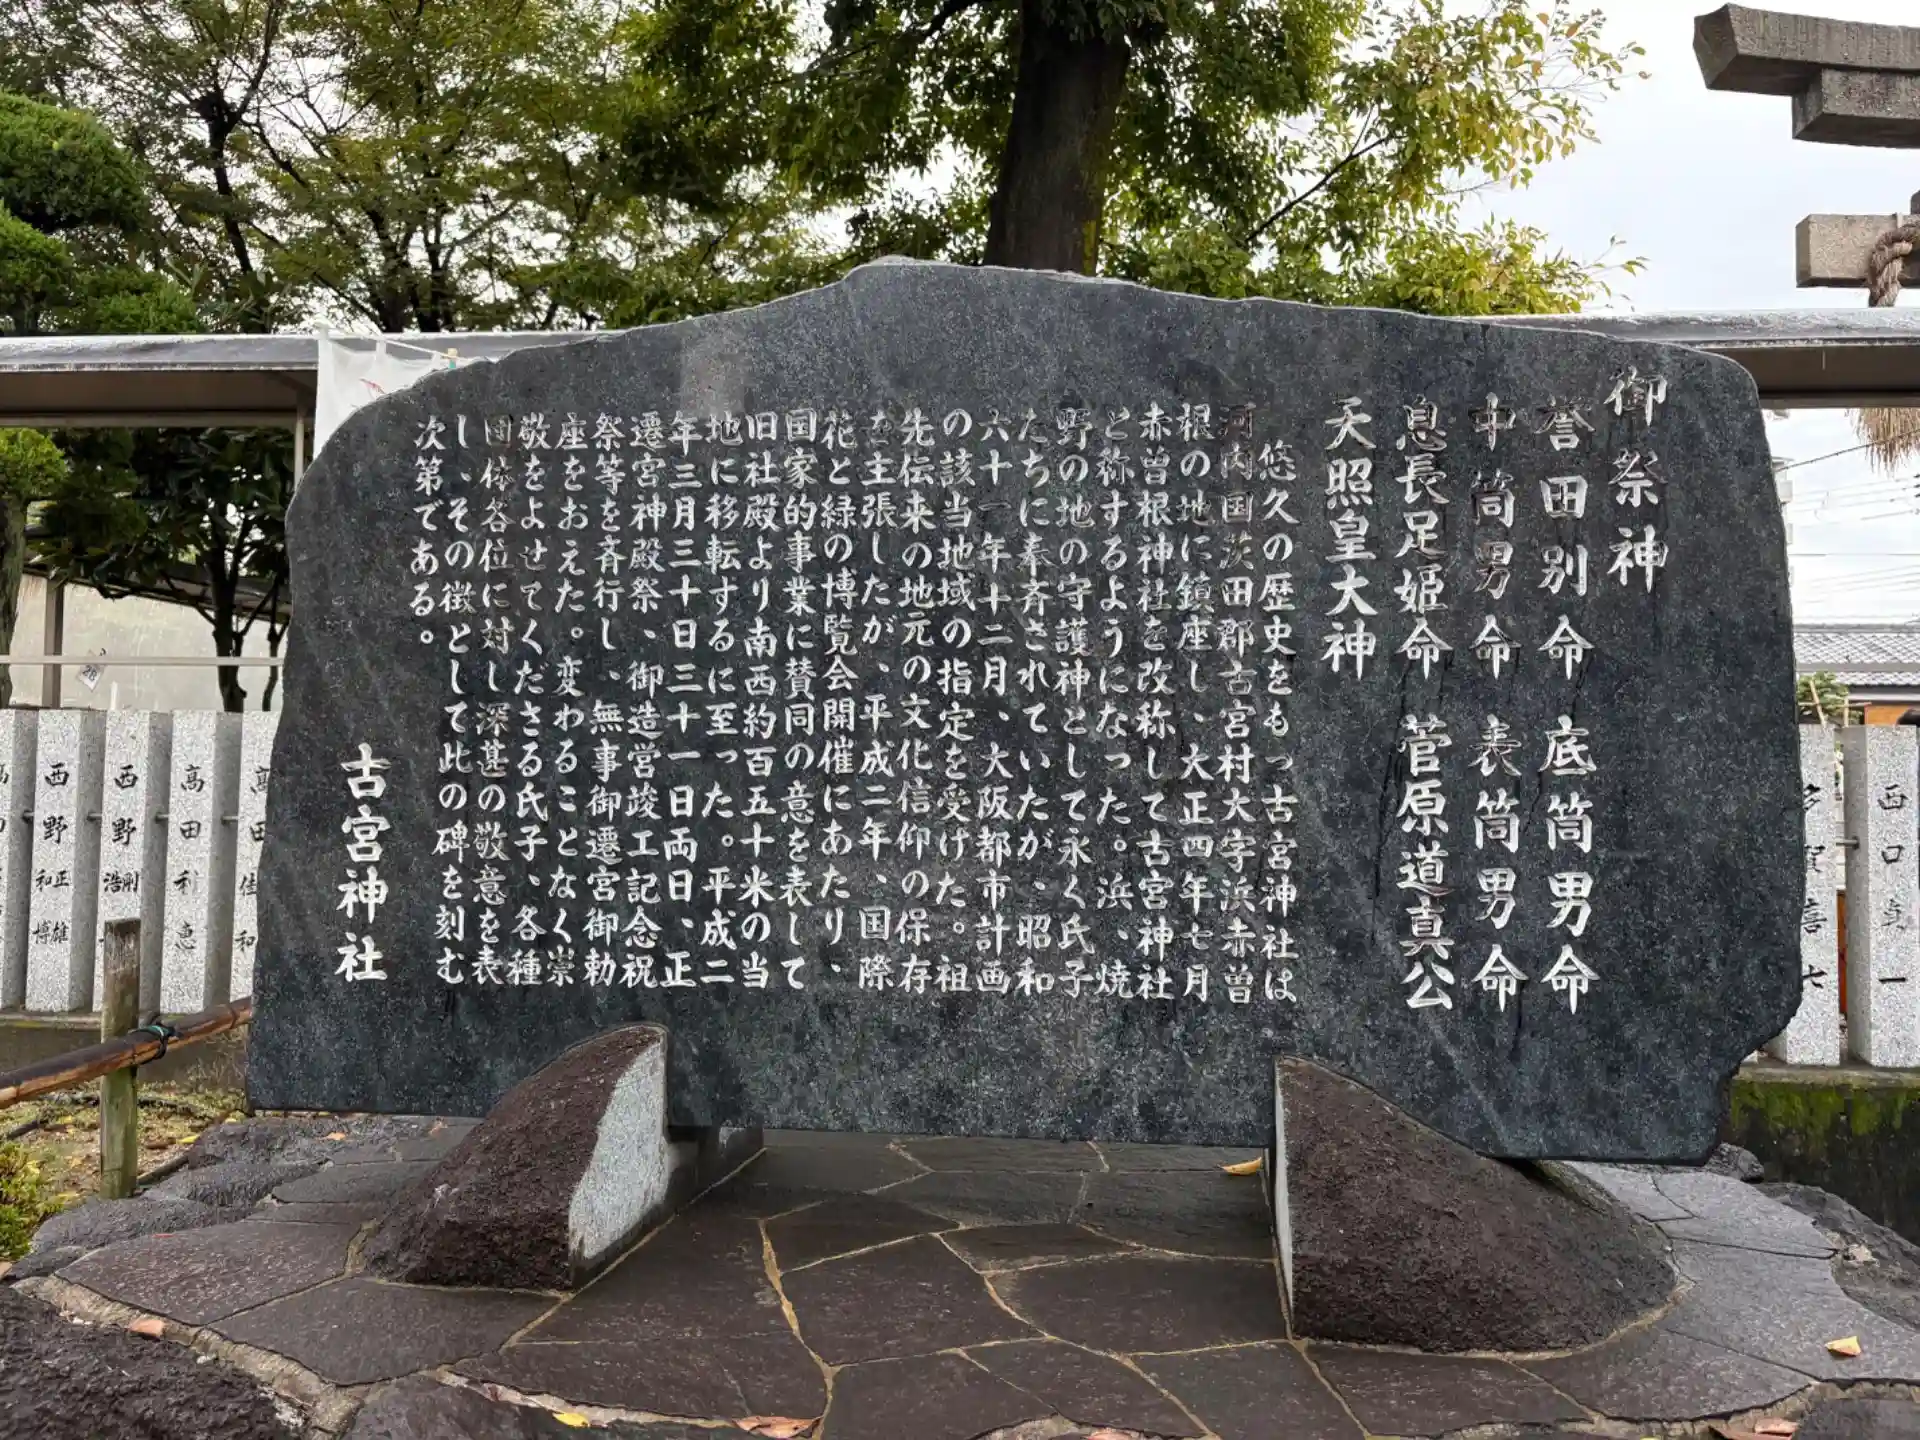 御祭神
誉田別命 底筒男命
中筒男命 表筒男命
息長足姫命 菅原道真公
天照皇大神
悠久の歴史をもつ古宮神社は
河内国茨田郡古宮村大字浜赤曽
根の地に鎮座し、大正四年七月
赤曽根神社を改称して古宮神社
と称するようになった。浜、焼
野の地の守護神として永く氏子
たちに奉斉されていたが、昭和
六十一年十二月、大阪都市計画
の該当地域の指定を受けた。祖
先伝来の地元の文化信仰の保存
を主張したが、平成二年、国際
花と緑の博覧会開催にあたり、
国家的事業に賛同の意を表して
旧社殿より南西約百五十米の当
地に移転するに至った。平成二
年三月三十日三十一日両日、正
遷宮神殿祭、御造営竣工記念祝
祭等を斉行し、無事御遷宮御勅
座をおえた。変わることなく崇
敬をよせてくださる氏子、各種
団体各位に対し深甚の敬意を表
し、その徴として此の碑を刻む
次第である。
古宮神社
西口真一
多賀喜七
高田佳和
高田利恵
西野浩剛
西野和正
博雄